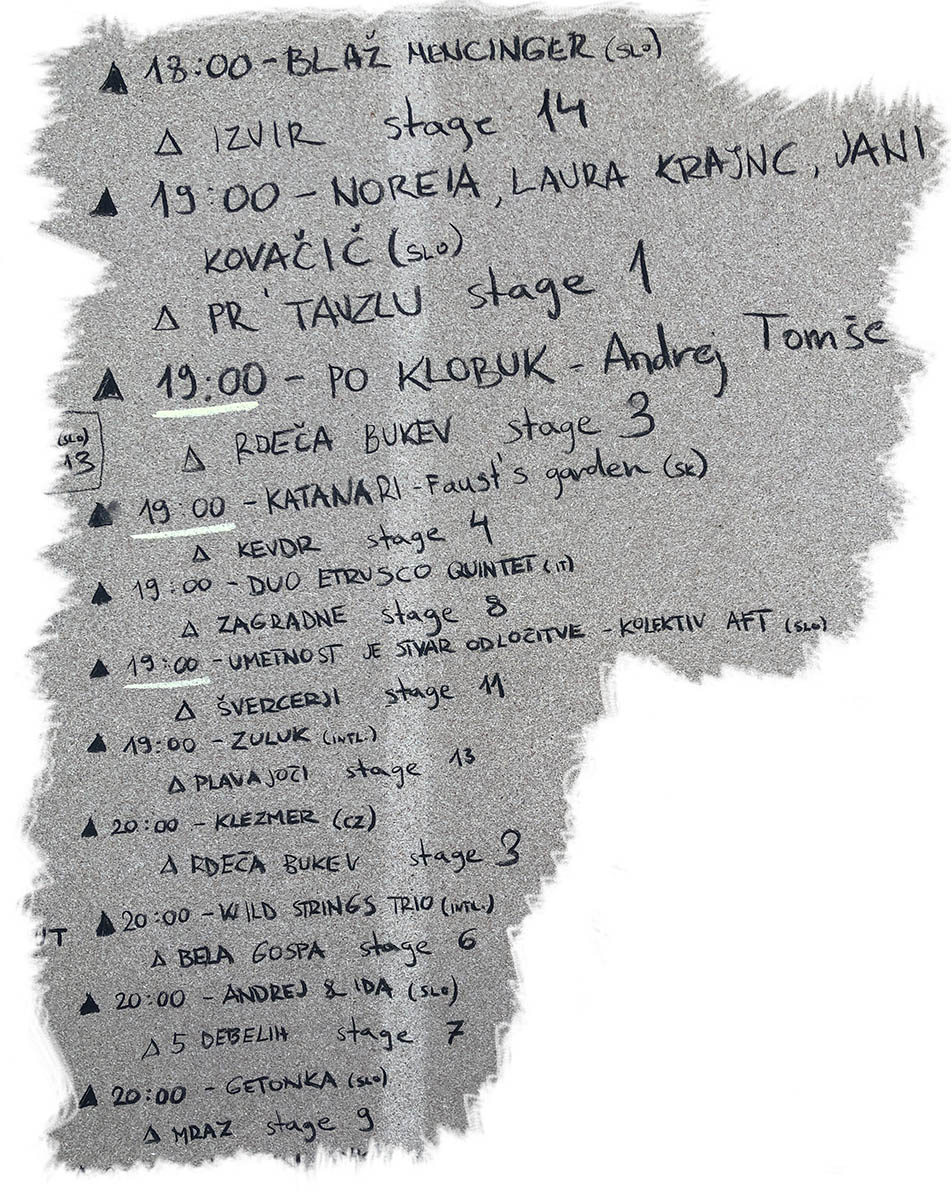 ▲ 18:00 - BLAŽ MENCINGER (SLO)
△ IZVIR stage 14
▲ 19:00 - NOREIA, LAURA KRAJNC, JANI
KOVAČIČ (SLO)
△ PR' TAVZLU stage 1
▲ 19:00 - PO KLOBUK - Andrej Tomše
△ RDEČA BUKEV stage 3
(SLO)
13
▲ 19:00 - KATANARI - Faust's garden (SK)
△ KEVDR stage 4
▲ 19:00 - DUO ETRUSCO QUINTET (IT)
△ ZAGRADNE stage 8
▲ 19:00 - UMETNOST JE STVAR ODLOČITVE - KOLEKTIV AFT (SLO)
△ ŠVERCERJI stage 11
▲ 19:00 - ZULUK (INTL.)
△ PLAVAJOČI stage 13
▲ 20:00 - KLEZMER (CZ)
△ RDEČA BUKEV stage 3
▲ 20:00 - WILD STRINGS TRIO (INTL.)
△ BELA GOSPA stage 6
▲ 20:00 - ANDREJ & IDA (SLO)
△ 5 DEBELIH stage 7
▲ 20:00 - GETONKA (SLO)
△ MRAZ stage 9